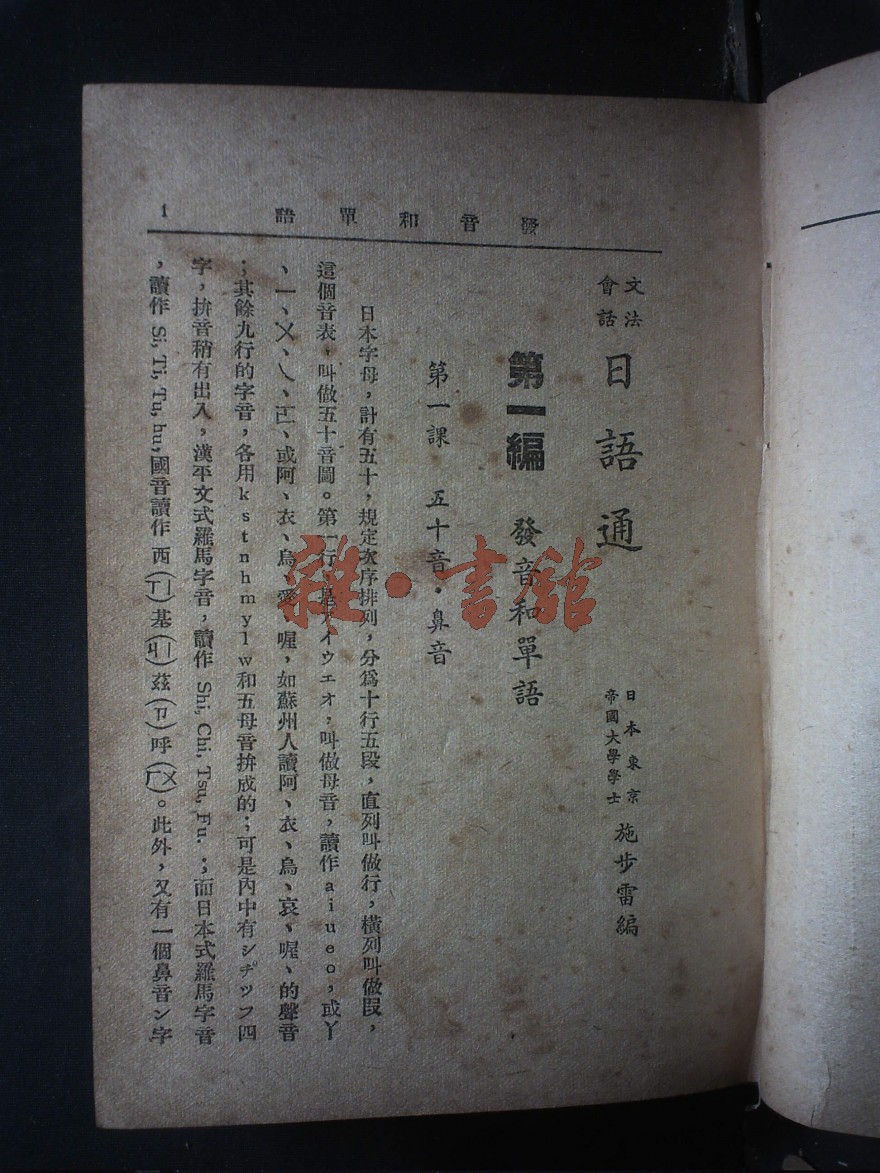 發音和單語
1
文法
會話
日語通
日本東京
帝國大學學士
施步雷編
第一編 發音和單語
第一課 五十音・鼻音
日本字母，計有五十，規定次序排列，分爲十行五段，直列叫做行，橫列叫做段，
這個音表，叫做五十音圖。第一行，是アイウエオ，叫做母音，讀作aiueo，或ㄚ
、一、ㄨ、ㄟ、ㄛ、或阿、衣、烏、愛、喔，如蘇州人讀阿、衣、烏、哀、喔、的聲音
；其餘九行的字音，各用kstnhmylw和五母音拚成的；可是內中有シチツフ四
字，拚音稍有出入，漢平文式羅馬字音，讀作 Shi, Chi, Tsu, Fu. ；而日本式羅馬字音
，讀作 Si, Ti, Tu, hu, 國音讀作西(ㄒㄧ)基(ㄐㄧ)茲(ㄗ)呼(ㄏㄨ)。此外，又有一個鼻音ン字
雜·書館